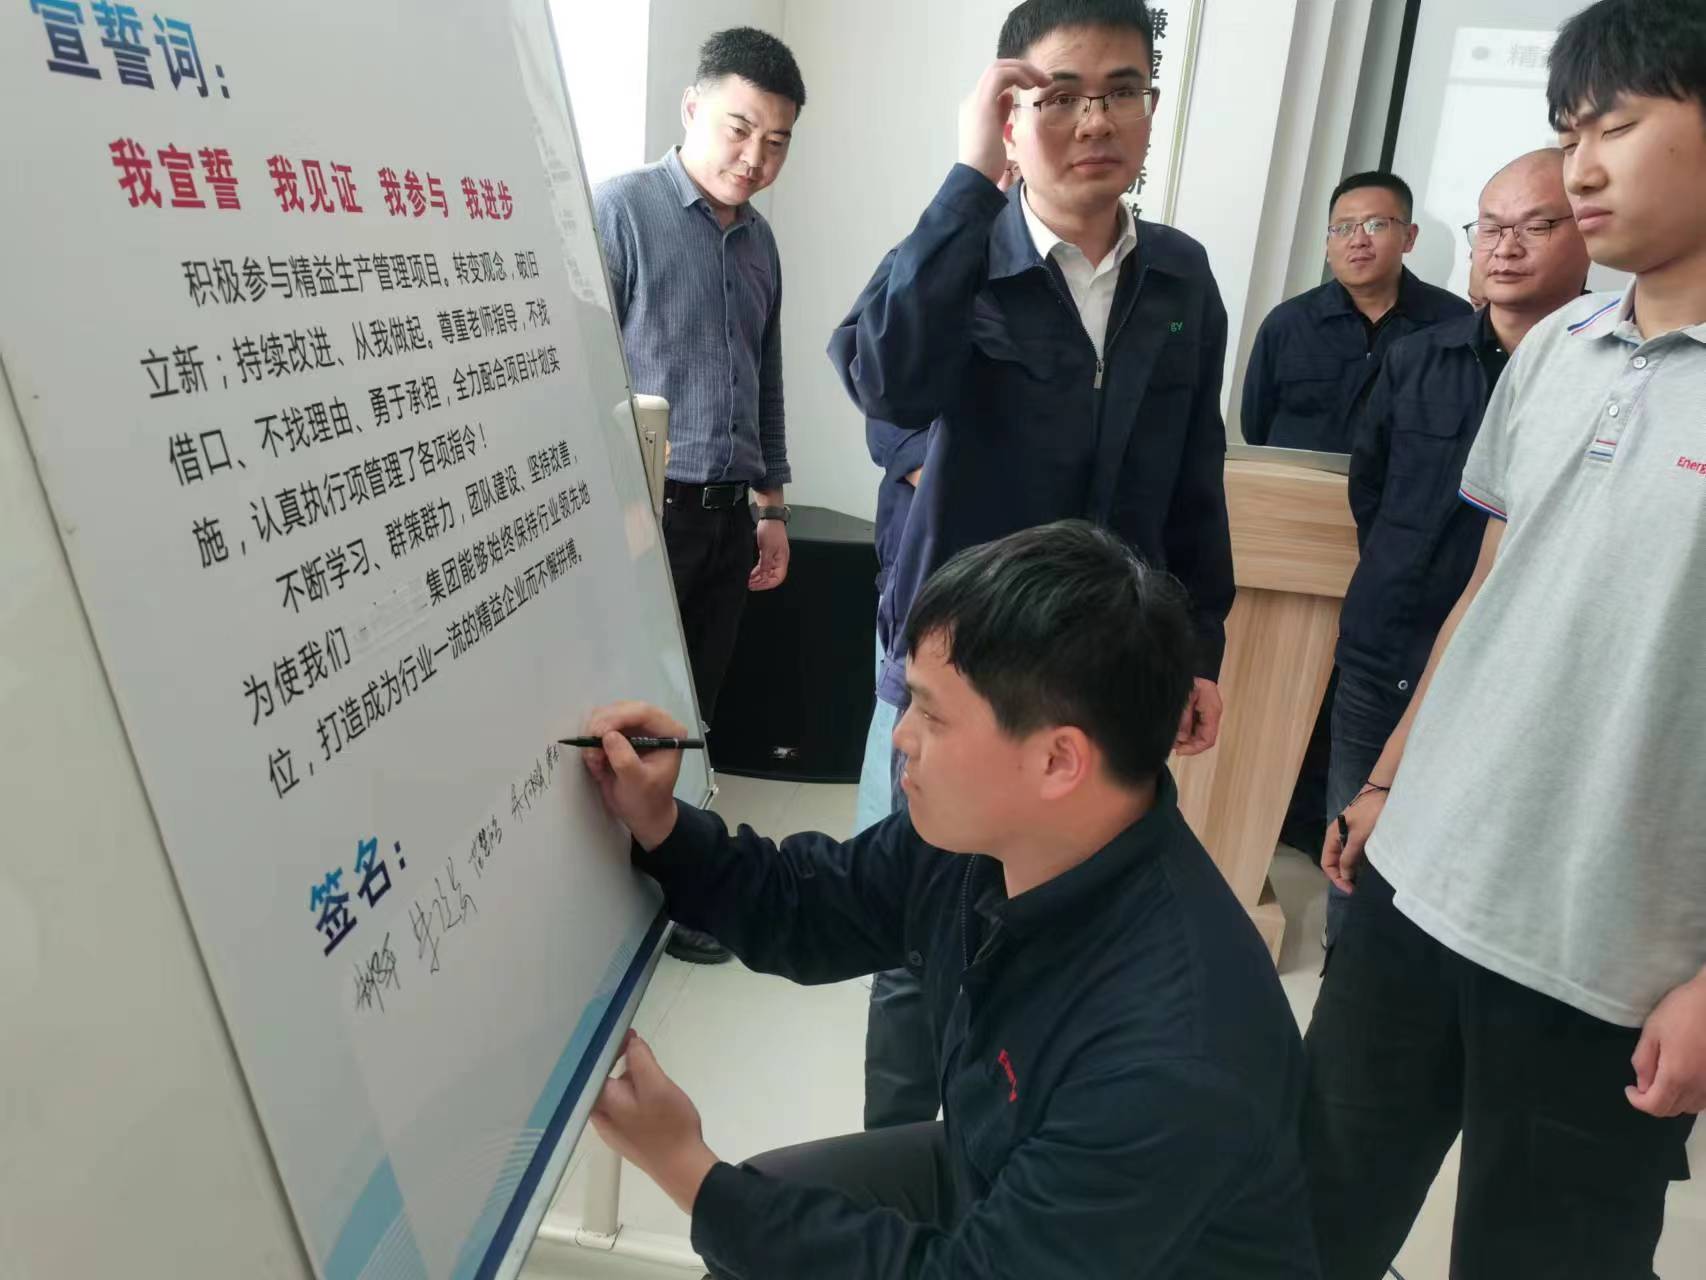 宣誓词：
我宣誓 我见证 我参与 我进步
积极参与精益生产管理项目。转变观念，破旧
立新；持续改进、从我做起。尊重老师指导，不找
借口、不找理由、勇于承担，全力配合项目计划实
施，认真执行项管理了各项指令！
不断学习、群策群力，团队建设、坚持改善，
为使我们 集团能够始终保持行业领先地
位，打造成为行业一流的精益企业而不懈拼搏。
签名：
谦虚
精
Energ
gy